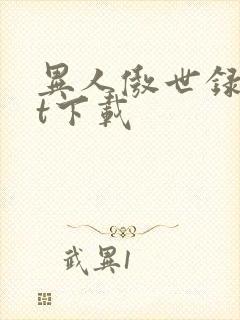 異人傲世録
t下載
武異1